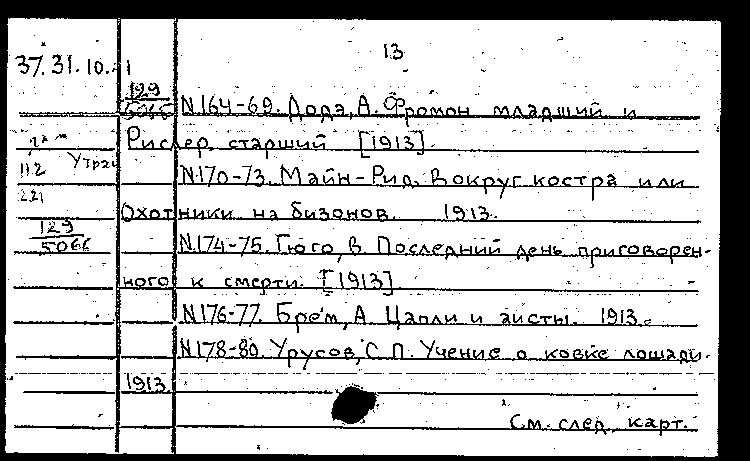 13
37.31.10.1
129
5065 N164-69. Додэ, А. Фромон младший и
Рислер старший [1913].
112 Утрач N170-73. Майн-Рид. Вокруг костра или
221
Охотники на бизонов. 1913.
129
5066 N174-75. Гюго, В. Последний день приговорен-
ного к смерти. [1913]
N176-77. Брем, А. Цапли и аисты. 1913.
N178-80. Урусов, С. П. Учение о ковке лошади.
1913.
См. след. карт.